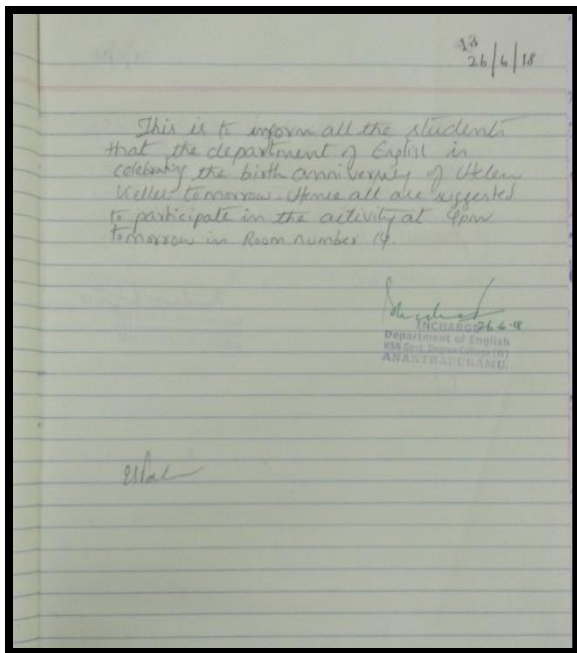 13
26/6/18
This is to inform all the students
that the department of English is
celebrating the birth anniversary of Helen
Keller tomorrow. Hence all are suggested
to participate in the activity at 4pm
tomorrow in Room number 14.
26-6-18
INCHARGE
Department of English
KSN Govt. Degree College (W)
ANANTHAPURAMU.